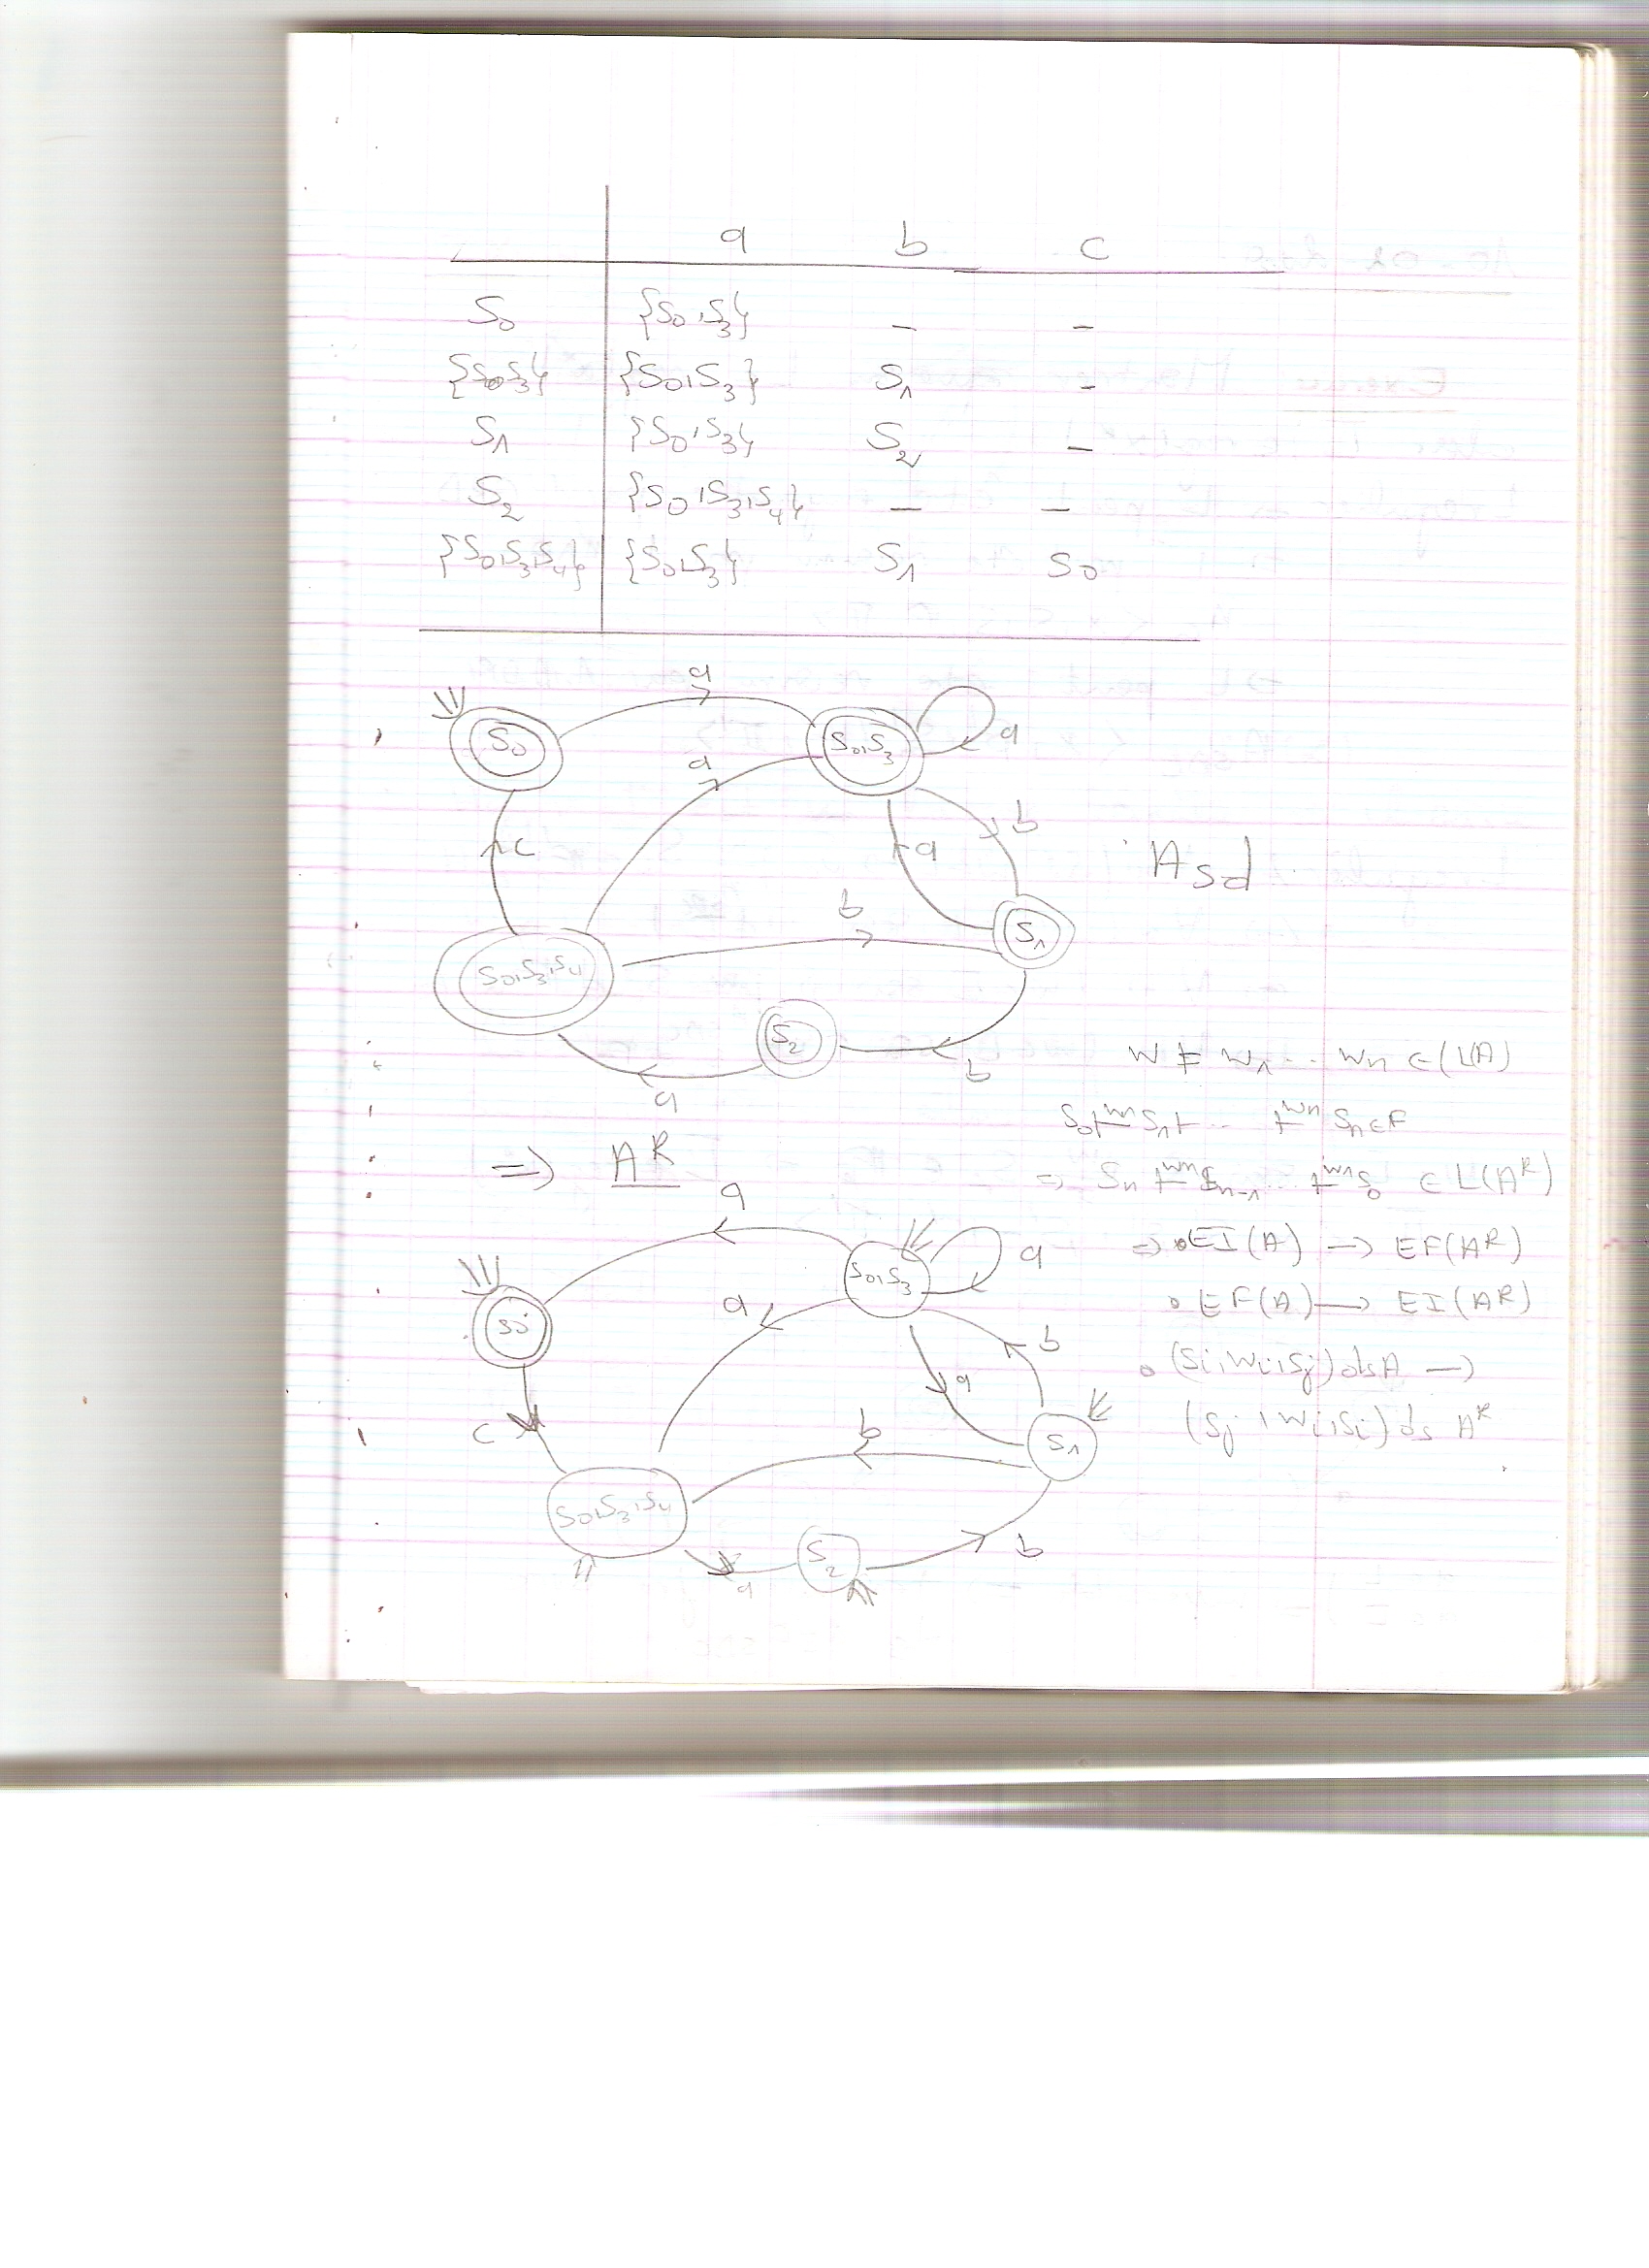 a b c
S0 {S0,S3} – –
{S0S3} {S0,S3} S1 –
S1 {S0,S3} S2 –
S2 {S0,S3,S4} – –
{S0,S3,S4} {S0,S3} S1 S0
a
S0 S0,S3 a
a
b
c a
Asd
b
S1
S0,S3,S4
S2
b
a
W = W1 ... Wn ∈ L(A)
S0 ⊢W1 S1 ⊢ ... ⊢Wn Sn ∈ F
=> AR
=> Sn ⊢Wn Sn-1 ... ⊢W1 S0 ∈ L(AR)
a
=> • EI(A) → EF(AR)
S0,S3 a
a
• EF(A) → EI(AR)
S0
b
• (Si,Wi,Sj) ds A →
a
(Sj,Wi,Si) ds AR
c b S1
S0,S3,S4
S2 b
a